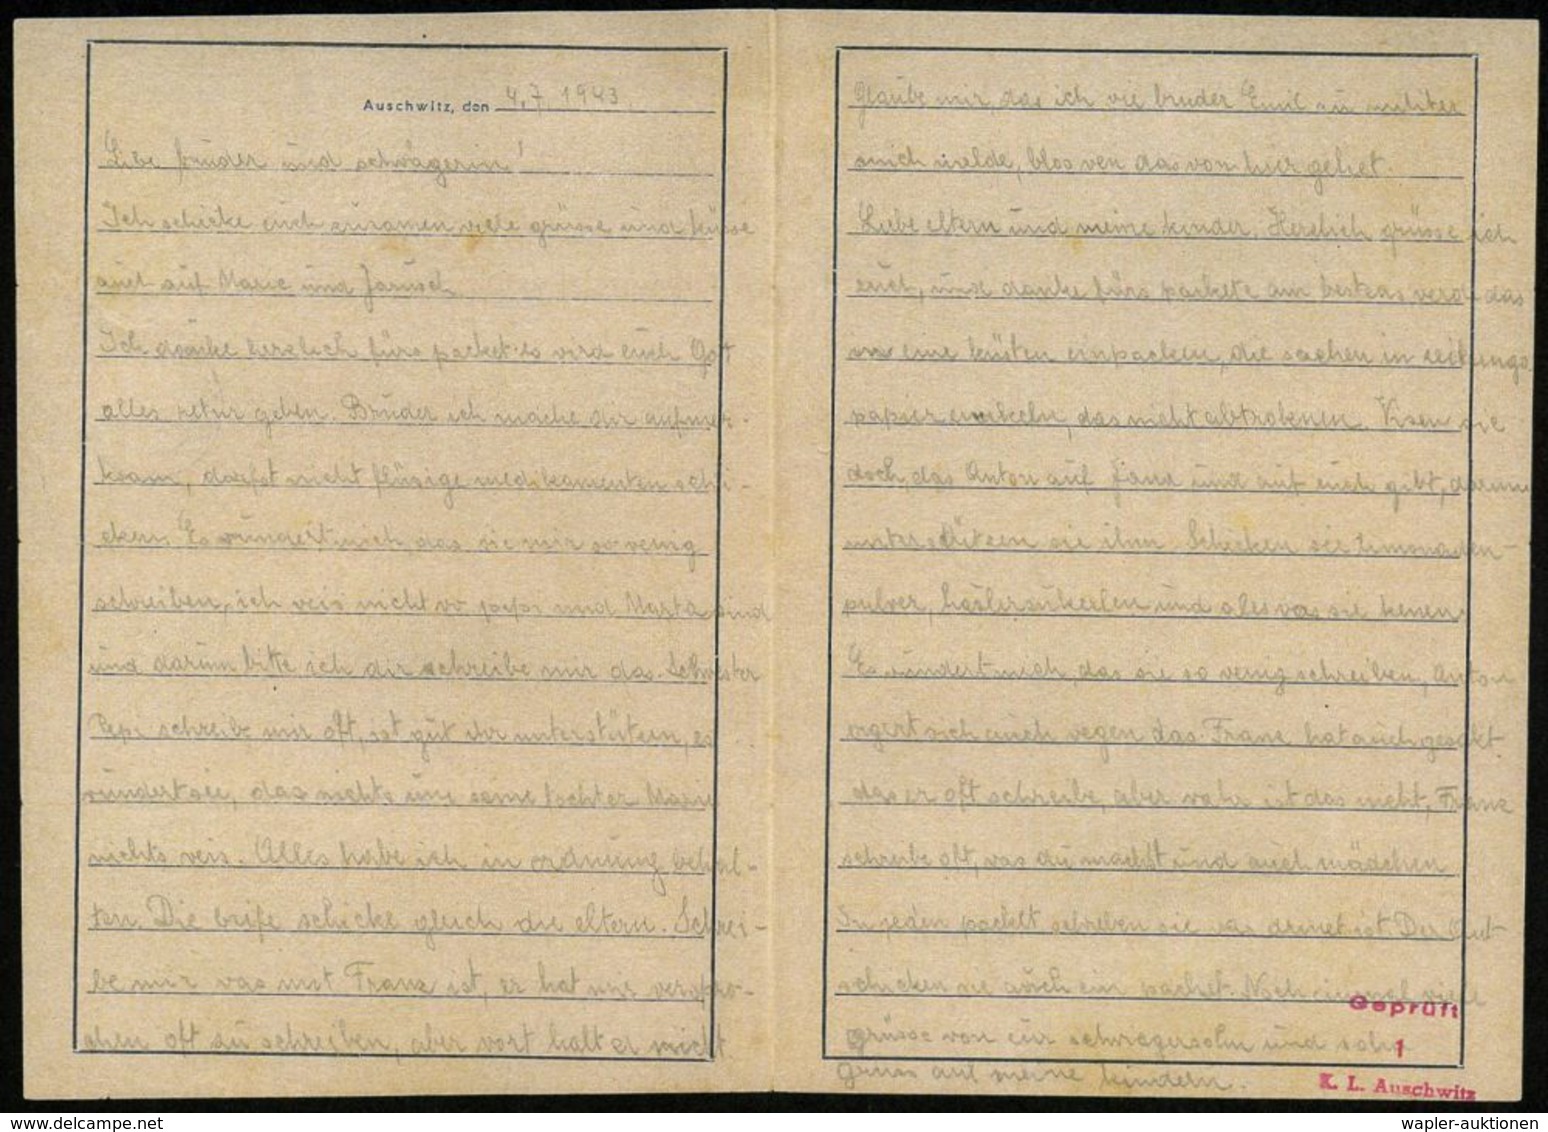 Auschwitz, den 4.7.1943
Libe bruder und schwägerin!
Ich schicke euch zusamen viele grüsse und küsse
auch auf Marie und Janusch
Ich danke herzlich fürs packet es vird euch Gott
alles retur geben. Bruder ich mache dir aufmer-
ksam, darfst nicht flüsige medikamenten schi-
cken. Es wundert mich das sie mir so venig
schreiben, ich veis nicht vo pepi und Marta sind
und darum bitte ich dir schreibe mir das Schwester
Pepi schreibe mir oft, ist gut ihr unterstützen, es
wundert sie, das nichts und seine tochter Marie
nichts veis. Alles habe ich in ordnung erhal-
ten. Die brife schicke gleich die eltern. Schrei-
be mir vas mit Franz ist, er hat mir verspro-
chen oft zu schreiben, aber vort halt er nicht
Glaube mir, das ich vie bruder Emil zu militer
mich melde, blos ven das von hier gehet.
Liebe eltern und meine kinder. Herzlich grüsse ich
euch, und danke fürs packete am bestens verd das
in eine küsten einpacken, die sachen in zeitungs
papier einvikeln, das nicht abtroknen. Visen sie
doch, das Anton auf Jana und auf euch gibt, darum
unterstützen sie ihm Schicken sie limonaden-
pulver, und ales vas sie kenen
Es vundert mich, das sie so venig schreiben, Anton
ergert sich auch vegen das Franz hat auch gesakt
das er oft schreibe, aber vahr ist das nicht, Franz
schreibe oft, vas du machst und auch mädchen
In jeden packet schreiben sie vas drinet ist Der
schicken sie auch ein packet. Noch einmal viele
grüsse von eur schwiegersohn und sohn
gruss auf meine kindern.
Geprüft
1
K. L. Auschwitz
wapler-auktionen